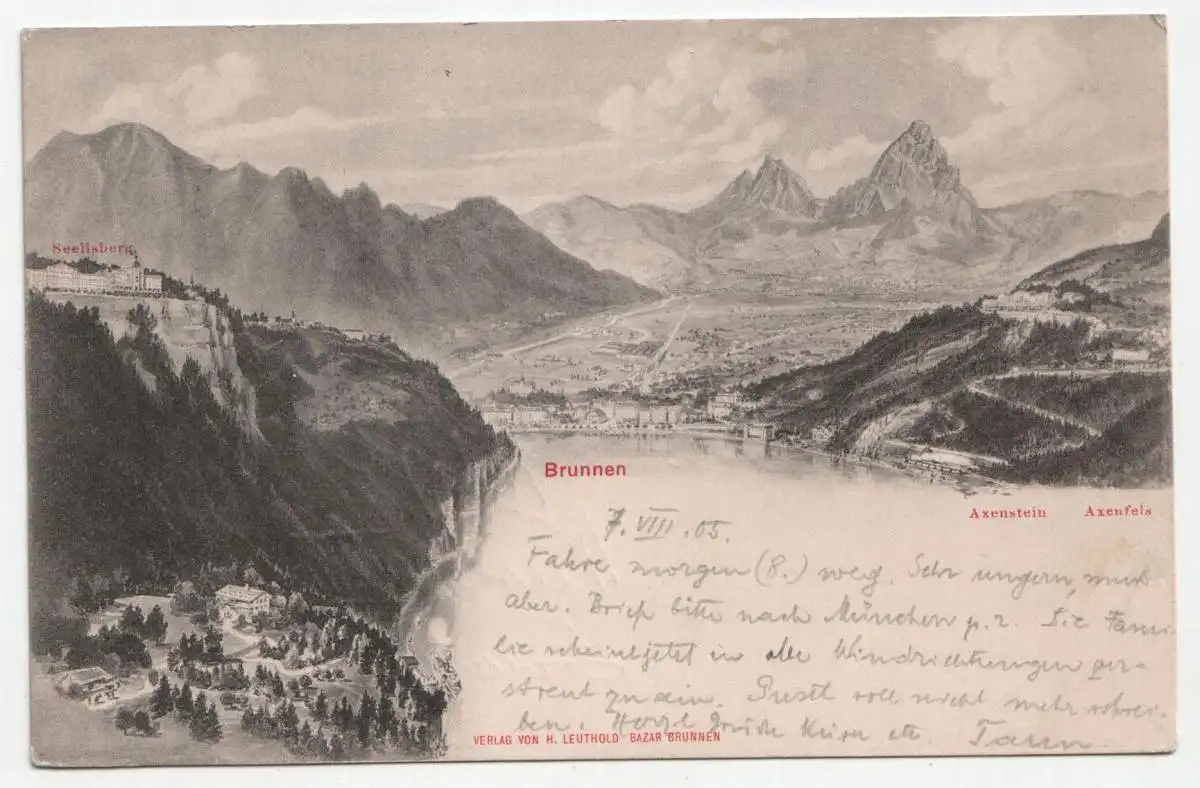 Seelisberg
Brunnen
Axenstein Axenfels
7. VIII. 05.
Fahre morgen (8.) weg. Sehr ungern, muß
aber. Brief bitte nach München p. r. Die Fami-
lie scheint jetzt in alle Windrichtungen zer-
streut zu sein. soll nicht mehr schrei-
ben. Herzl Grüße etc.
VERLAG VON H. LEUTHOLD BAZAR BRUNNEN